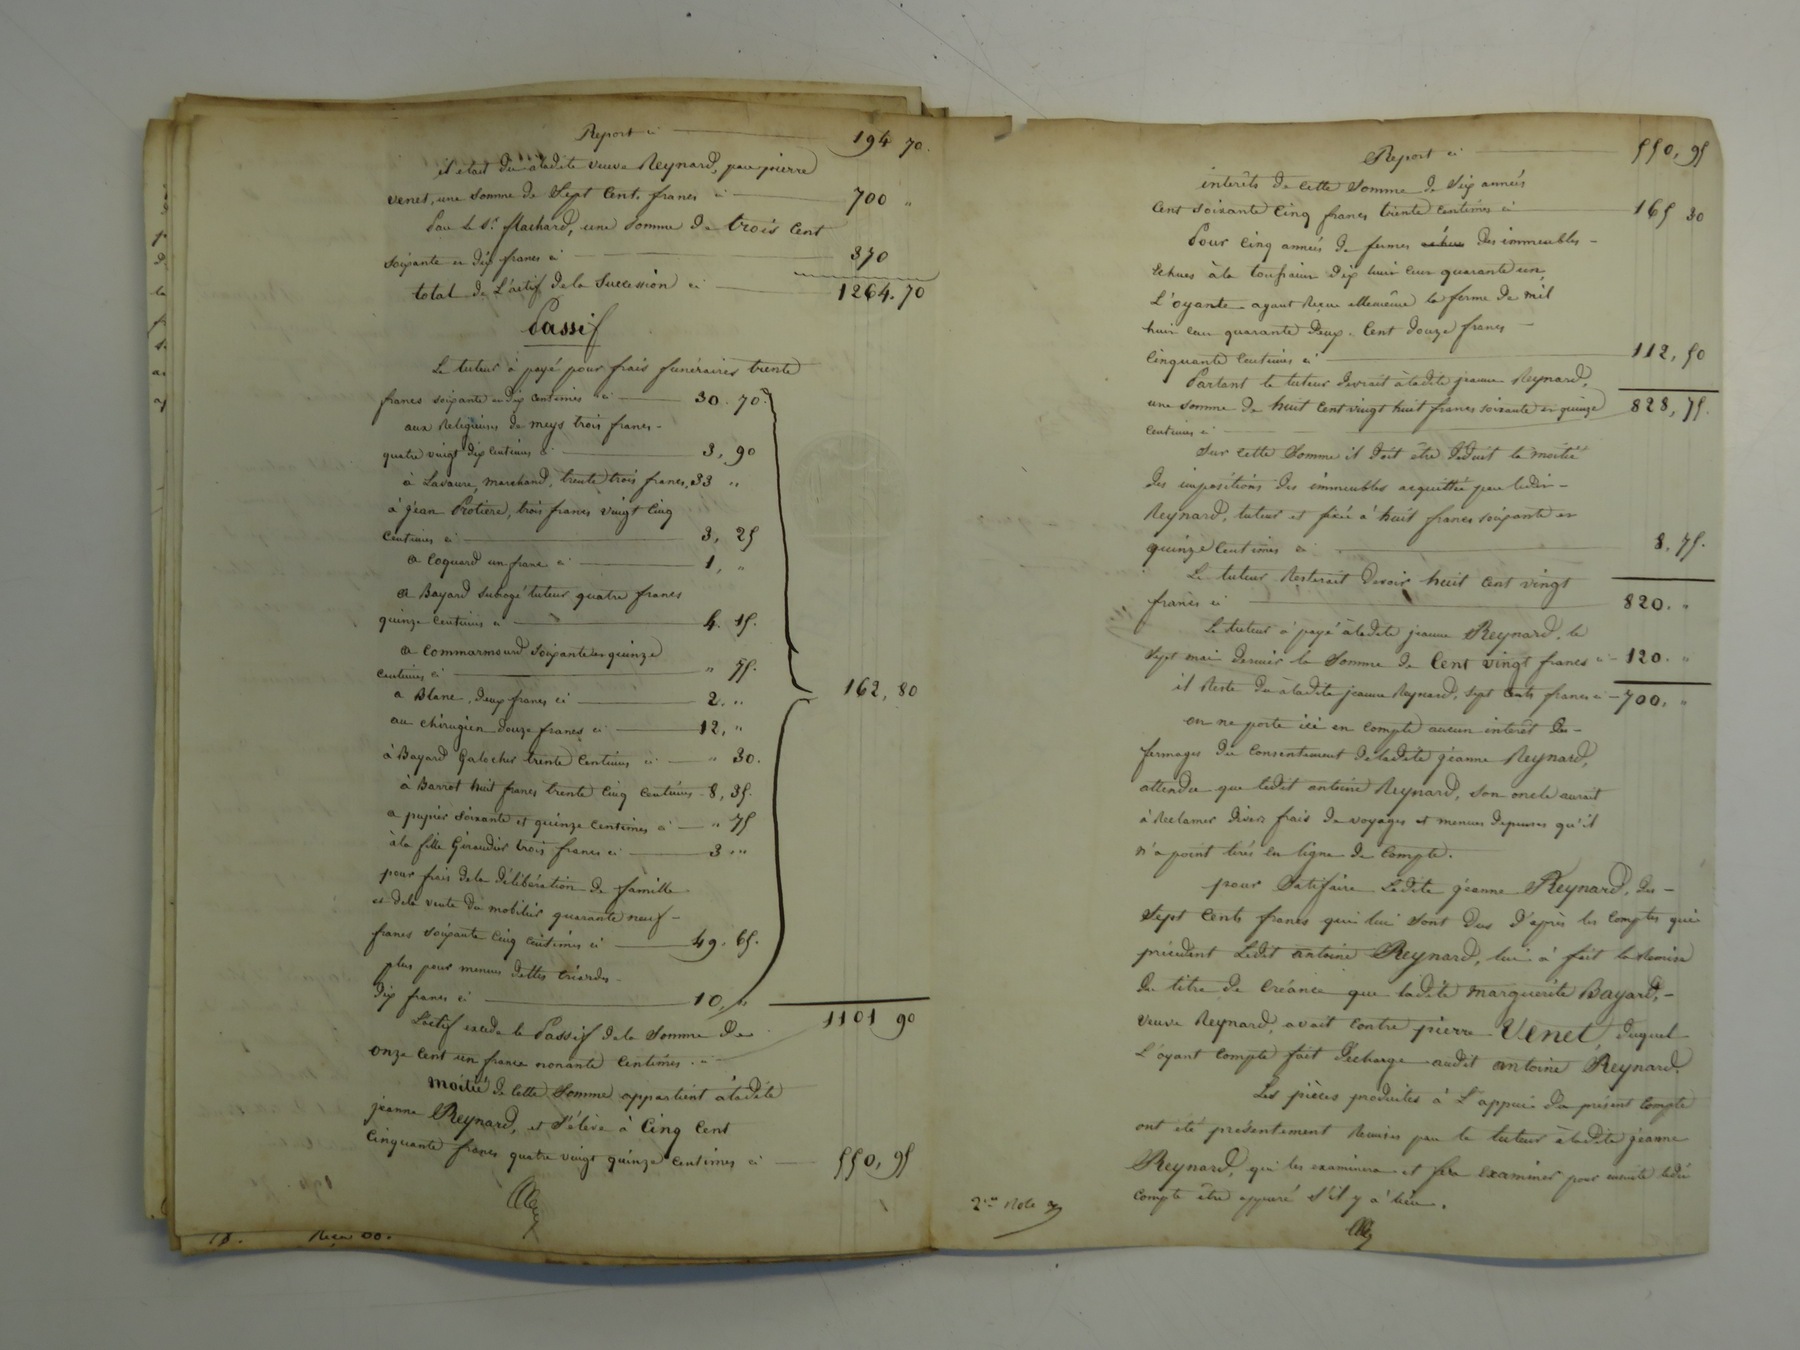 Report ci 194 70.
il était dû à ladite veuve Reynard, par pierre
venet, une somme de Sept Cents francs ci 700 "
Par le Sr. Machard, une somme de trois Cent
soixante et dix francs ci 370
total de L'actif dela Succession ci 1264.70
Passif
Le tuteur à payé pour frais funéraires trente
francs soixante et dix centimes ci 30. 70.
aux Religieuses de meys trois francs
quatre vingt dix centimes ci 3, 90
à Lavaure, marchand, trente trois francs, 33 "
à jean Protière, trois francs vingt cinq
centimes ci 3, 25
a Coquard un franc ci 1, "
a Bayard Subrogé tuteur quatre francs
quinze centimes ci 4. 15.
a Commarmourd Soixante et quinze
centimes ci " 75.
a Blanc, deux francs ci 2. "
au chirugien douze francs ci 12, "
à Bayard Galocher trente Centimes ci " 30.
à Barrot huit francs trente cinq Centimes 8, 35.
a pupier Soixante et quinze Centimes ci " 75
à la fille Giraudier trois francs ci 3 "
pour frais dela délibération de famille
et dela vente du mobilier quarante neuf
francs soixante cinq centimes ci 49. 65.
plus pour menues dettes
dix francs ci 10, "
162, 80
L'actif excede le Passif dela Somme de 1101 90
onze Cent un francs nonante Centimes.
moitié de cette Somme appartient à ladite
jeanne Reynard, et s'élève à Cinq Cent
Cinquante francs quatre vingt quinze Centimes ci 550, 95
Report ci 550, 95
interêts de cette Somme de Six années
Cent soixante Cinq francs trente Centimes ci 165 30
Pour Cinq années de fermes des immeubles
Echues à la toussaint dix huit cent quarante un,
L'oyante ayant reçue ellemême la ferme de mil
huit cent quarante deux. Cent douze francs
Cinquante Centimes ci 112, 50
Partant le tuteur devrait à ladite jeanne Reynard,
une somme de huit cent vingt huit francs soixante et quinze 828, 75.
Centimes ci
Sur cette Somme il doit être déduit la moitié
des impositions des immeubles acquittée par ledit
Reynard, tuteur et fixée à huit francs soixante et
quinze Centimes ci 8, 75.
Le tuteur Resterait devoir huit Cent vingt
francs ci 820. "
Le tuteur à payé à ladite jeanne Reynard, le
Sept mai dernier la Somme de Cent vingt francs ci 120. "
il Reste dû à ladite jeanne Reynard, Sept Cents francs ci 700, "
on ne porte ici en compte aucun interêt des
fermages du Consentement de ladite jeanne Reynard,
attendu que ledit antoine Reynard, son oncle aurait
à Reclamer divers frais de voyages et menues depenses qu'il
n'a point tirés en ligne de compte.
pour Satifaire Ladite jeanne Reynard, des
Sept Cents francs qui lui Sont dus d'après les comptes qui
précèdent Ledit antoine Reynard, lui à fait la Remise
du titre de Créance que ladite marguerite Bayard,
veuve Reynard, avait contre pierre Venet, duquel
L'oyant Compte fait décharge audit antoine Reynard.
Les pièces produites à L'appui du présent Compte
ont été présentement Remises par le tuteur à ladite jeanne
Reynard, qui les examinera et fera examiner pour ensuite ledit
compte être appuré s'il y a lieu.
2me Role